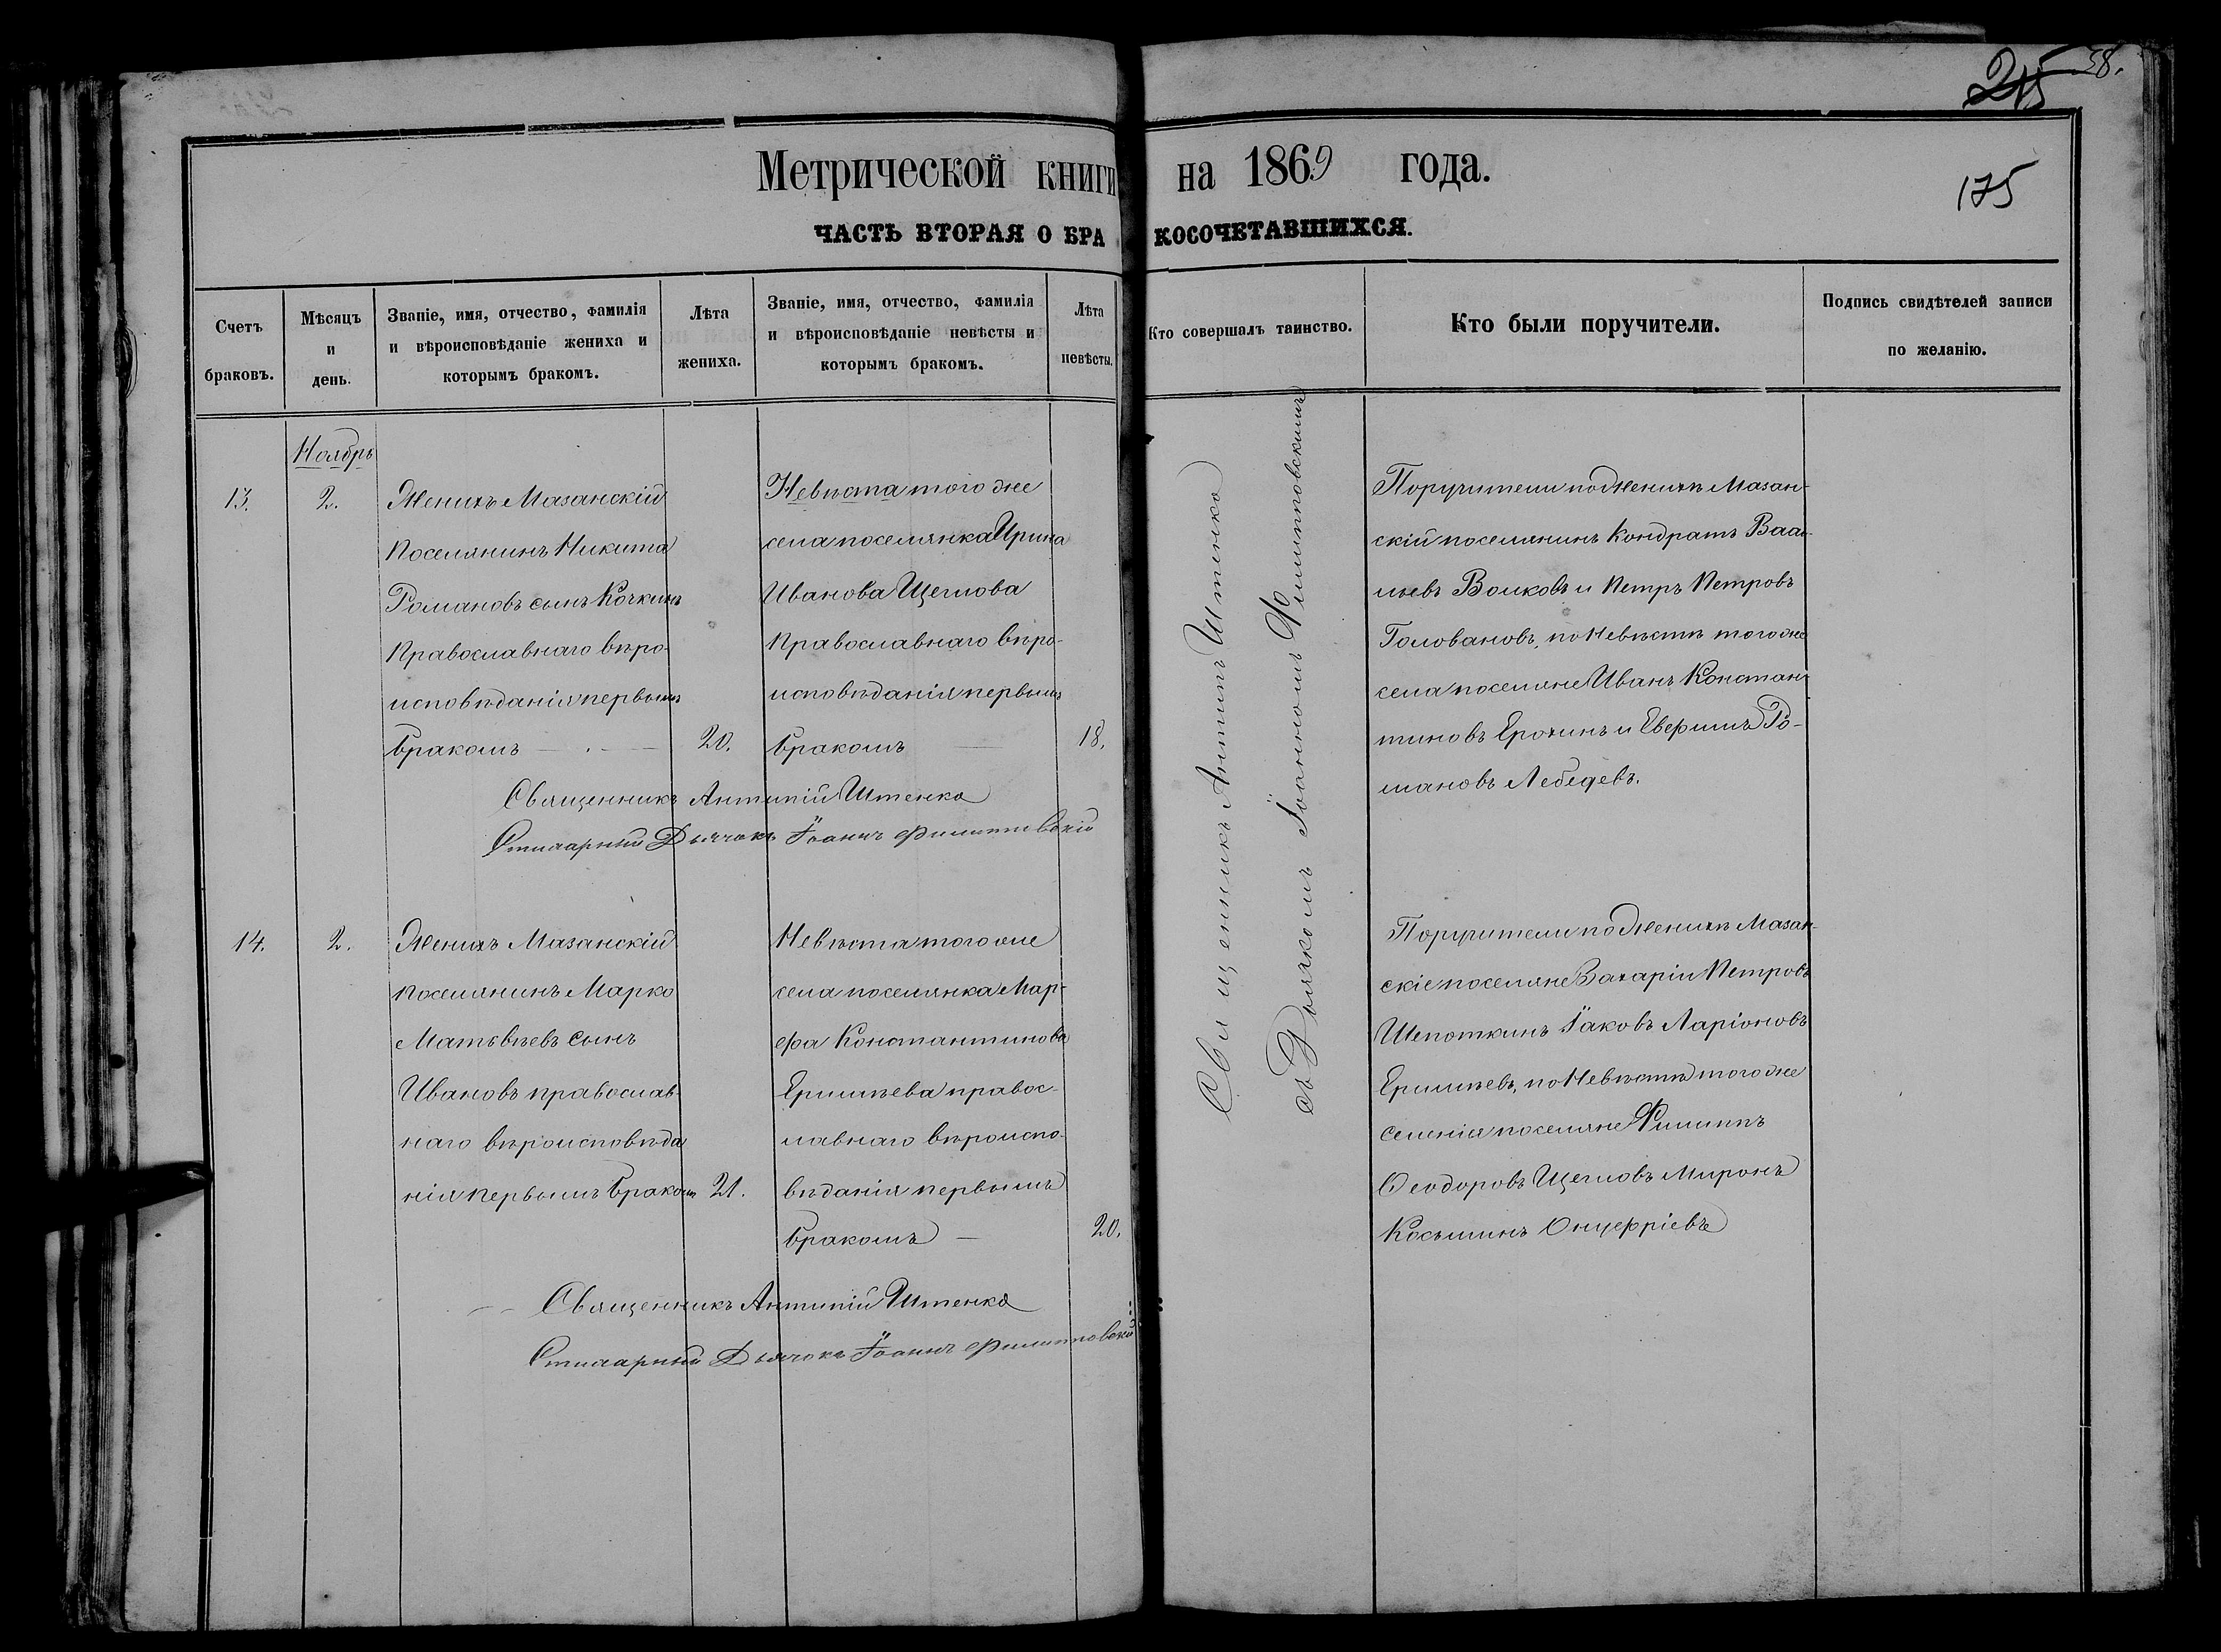 215 38.
Метрической книги на 1869 года.
175
ЧАСТЬ ВТОРАЯ О БРАКОСОЧЕТАВШИХСЯ.
Счетъ браковъ.
Мѣсяцъ и день.
Званіе, имя, отчество, фамилія
и вѣроисповѣданіе жениха и
которымъ бракомъ.
Лѣта жениха.
Званіе, имя, отчество, фамилія
и вѣроисповѣданіе невѣсты и
которымъ бракомъ.
Лѣта невѣсты.
Кто совершалъ таинство.
Кто были поручители.
Подпись свидѣтелей записи
по желанію.
Ноябрь
13.
2.
Женихъ Мазанскій
поселянинъ Никита
Романовъ сынъ Кочкинъ
православнаго вѣро-
исповѣданія первымъ
бракомъ
20.
Невѣста того же
села поселянка Ирина
Иванова Щеглова
православнаго вѣро-
исповѣданія первымъ
бракомъ
18.
Священникъ Антипій Штенко
Стихарный Дьячокъ Іоаннъ Филипповскій
Священникъ Антипъ Штенко
съ Дьячкомъ Іоанномъ Филипповскимъ
Поручители по Женихѣ Мазан-
скій поселянинъ Кондратъ Васи-
льевъ Волковъ и Петръ Петровъ
Головановъ, по Невѣстѣ того же
села поселяне Иванъ Констан-
тиновъ Ерохинъ и Евфимъ Ро-
мановъ Лебедевъ.
14.
2.
Женихъ Мазанскій
поселянинъ Марко
Матвѣевъ сынъ
Ивановъ православ-
наго вѣроисповѣда
нія первымъ бракомъ
21.
Невѣста того же
села поселянка Мар-
фа Константинова
Ершиѣева правос-
лавнаго вѣроиспо-
вѣданія первымъ
бракомъ
20.
Священникъ Антипій Штенко
Стихарный Дьячокъ Іоаннъ Филипповскій
Поручители по Женихѣ Мазан-
скіе поселяне Захарій Петровъ
Шепоткинъ Іаковъ Ларіоновъ
по Невѣстѣ того же
селенія поселяне Филиппъ
Ѳеодоровъ Щегловъ Миронъ
Косьминъ Онуфріевъ